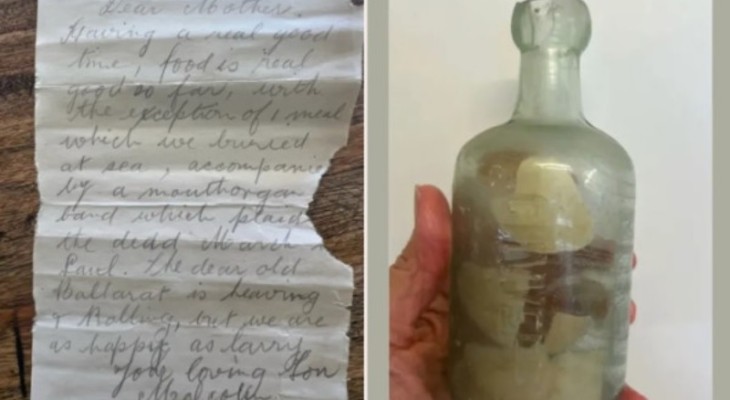 Dear Mother,
Having a real good
time, food is real
good so far, with
the exception of 1 meal
which we buried
at sea, accompanie
by a mouthorgan
band which plaid
the dead March
Saul. The dear old
Ballarat is heaving
& Rolling, but we are
as happy as larry
Your loving Son
Malcolm